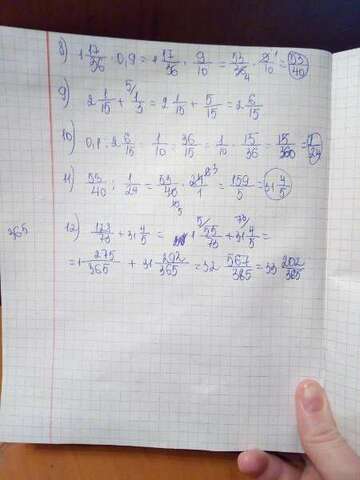 8) 1 17/36 · 0,9 = 1 17/36 · 9/10 = 53/36 · 9/10 = 53/40
9) 2 1/15 + 1/3 = 2 1/15 + 5/15 = 2 6/15
10) 0,1 : 2 6/15 = 1/10 : 36/15 = 1/10 · 15/36 = 15/360 = 1/24
11) 53/40 : 1/24 = 53/40 · 24/1 = 159/5 = 31 4/5
365
12) 73 + 31 4/5 = 1 55/73 + 31 4/5 =
= 1 275/365 + 31 292/365 = 32 567/365 = 33 202/365